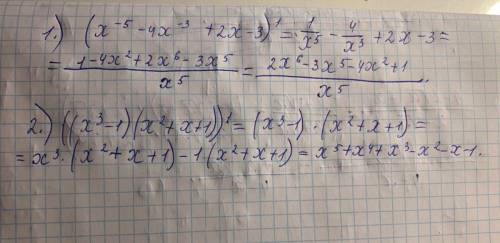 1.) (x⁻⁵ - 4x⁻³ + 2x - 3)¹ = 1/x⁵ - 4/x³ + 2x - 3 =
= (1 - 4x² + 2x⁶ - 3x⁵)/x⁵ = (2x⁶ - 3x⁵ - 4x² + 1)/x⁵.
2.) ((x³-1)(x²+x+1))¹ = (x³-1)·(x²+x+1) =
= x³·(x²+x+1) - 1(x²+x+1) = x⁵+x⁴+x³-x²-x-1.